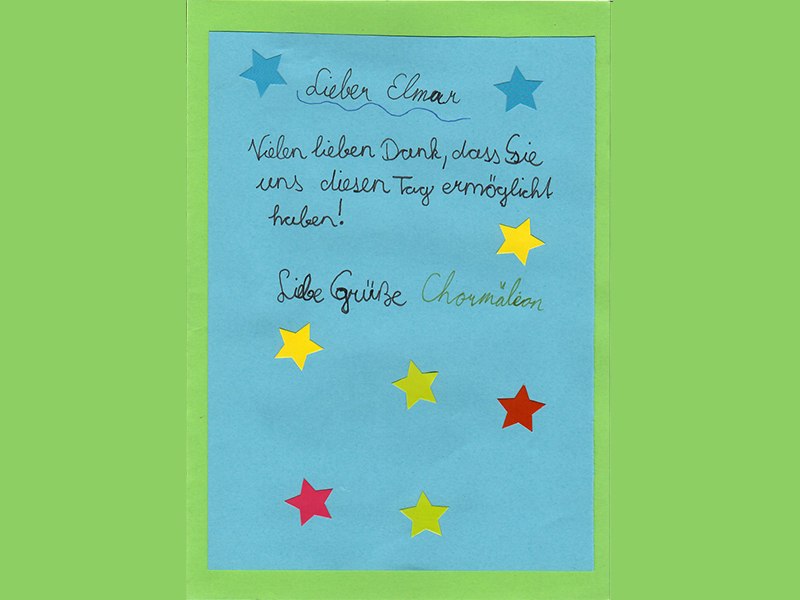 Lieber Elmar
Vielen lieben Dank, dass Sie
uns diesen Tag ermöglicht
haben!
Liebe Grüße Chormäleon